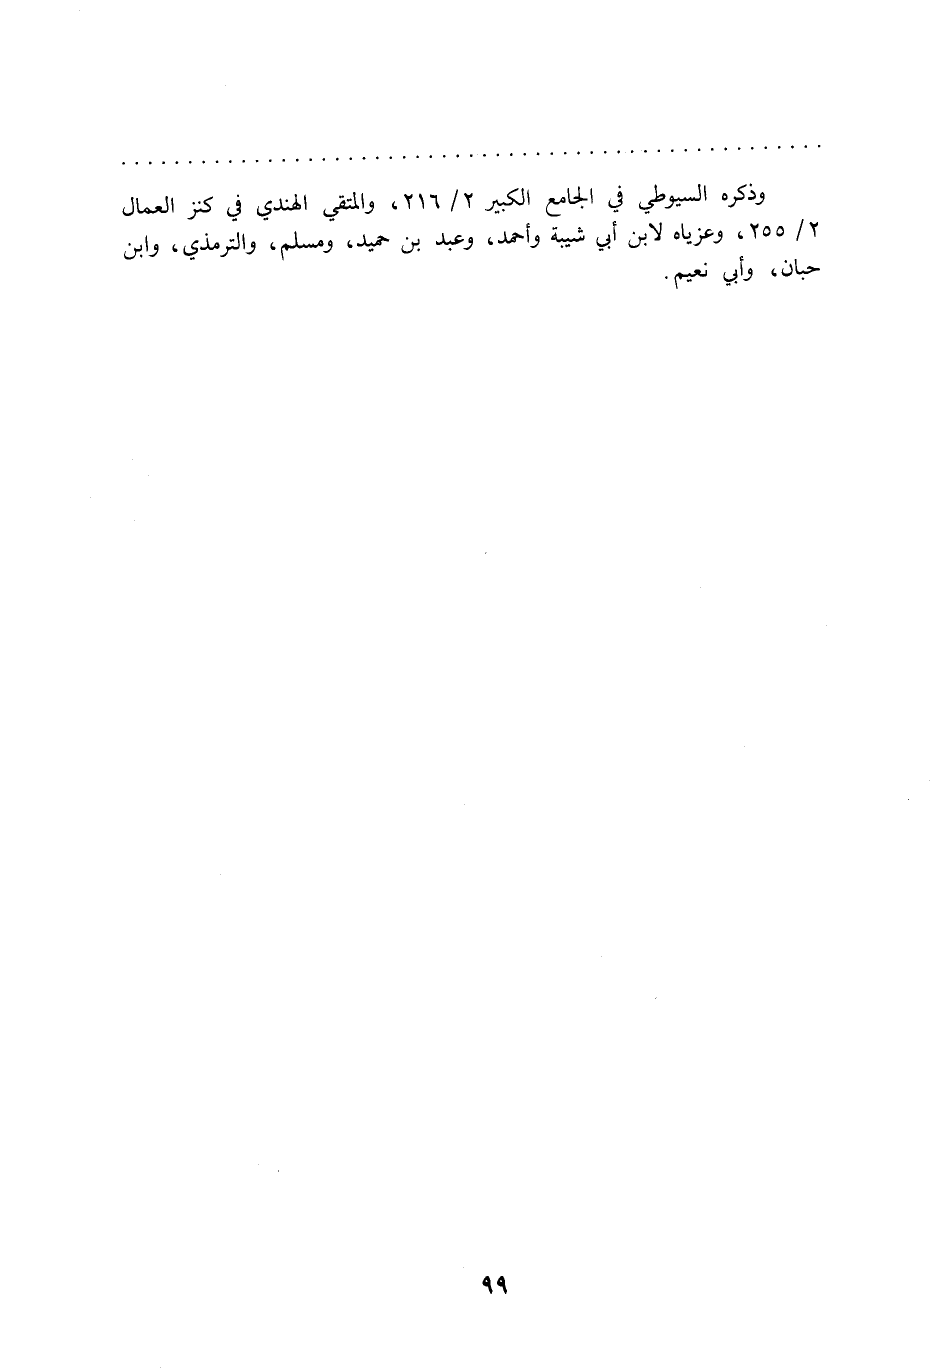 . . . . . . . . . . . . . . . . . . . . . . . . . . . . . . . . . . . . . . . . . . . . . . . . . . . . .
وذكره السيوطي في الجامع الكبير ٢/ ٢١٦، والمتقي الهندي في كنز العمال
٢/ ٢٥٥، وعزياه لابن أبي شيبة وأحمد، وعبد بن حميد، ومسلم، والترمذي، وابن
حبان، وأبي نعيم.
٩٩